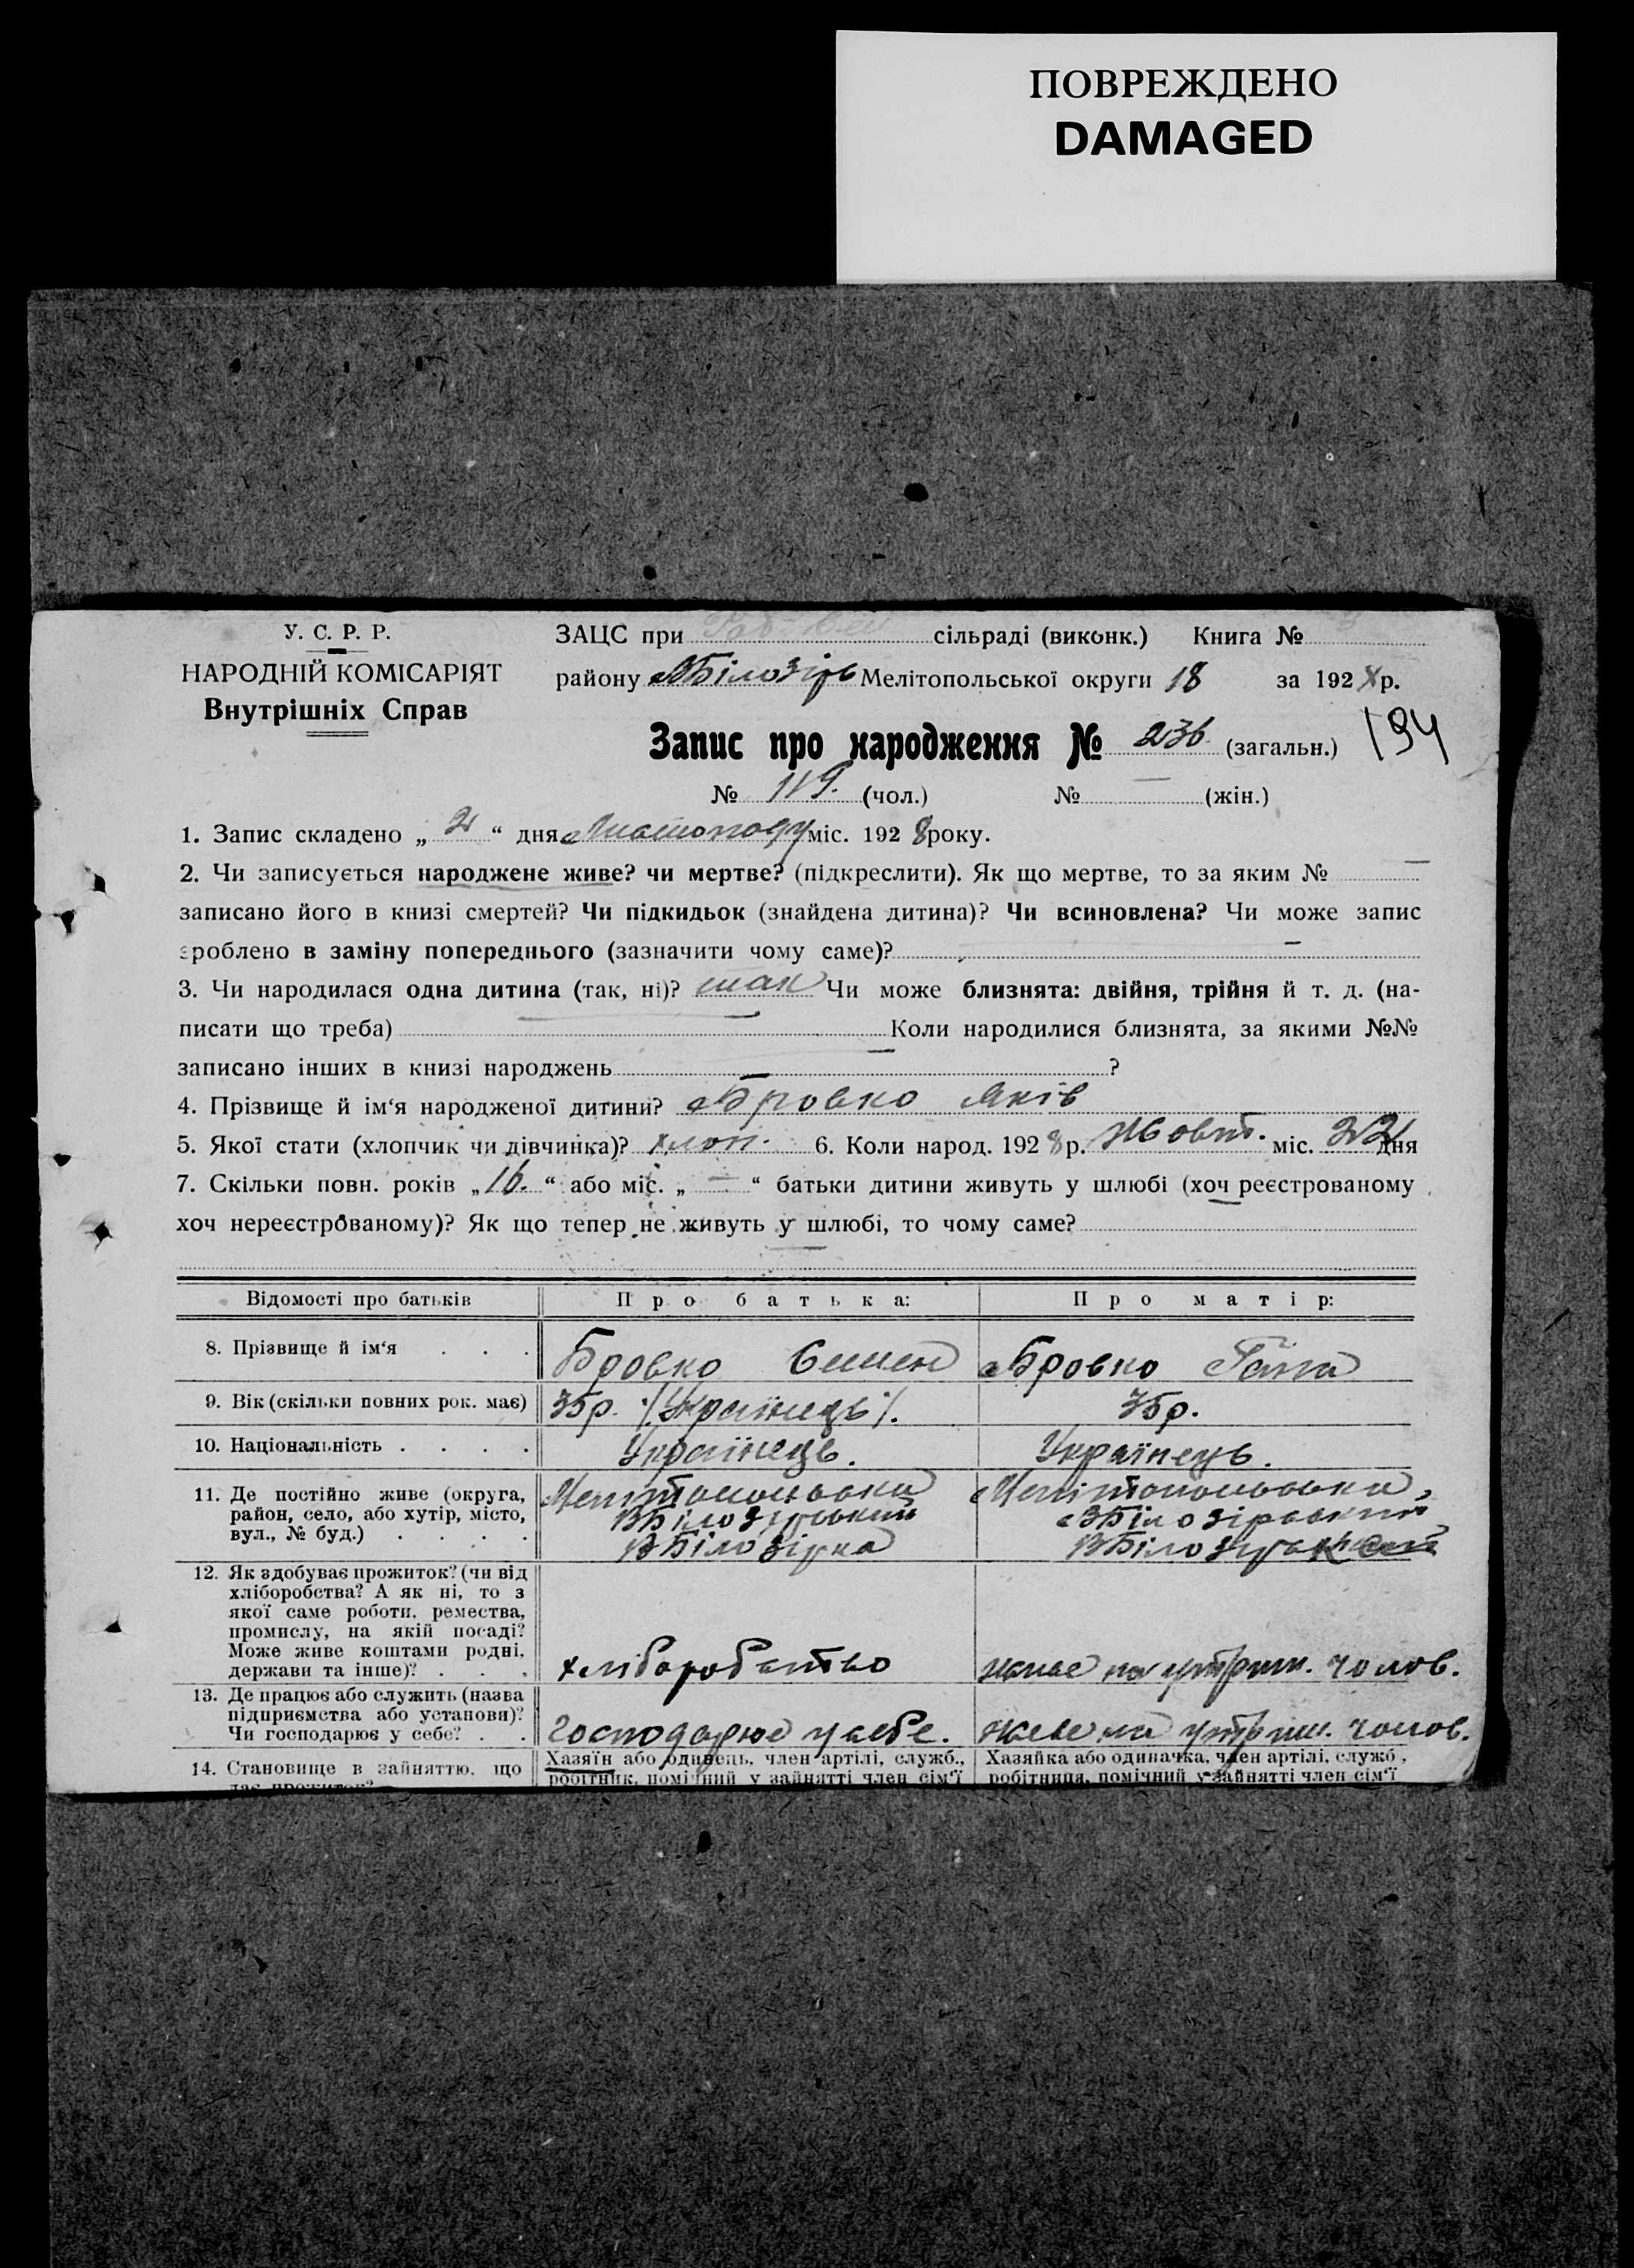 ПОВРЕЖДЕНО
DAMAGED
У. С. Р. Р.
НАРОДНІЙ КОМІСАРІЯТ
Внутрішніх Справ
ЗАЦС при сільраді (виконк.) Книга №
району ВБілозір Мелітопольської округи 18 за 1928 р.
Запис про народження № 236 (загальн.) 194
№ 119. (чол.) № — (жін.)
1. Запис складено „ 2 “ дня Листопаду міс. 1928 року.
2. Чи записується народжене живе? чи мертве? (підкреслити). Як що мертве, то за яким № —
записано його в книзі смертей? Чи підкидьок (знайдена дитина)? Чи всиновлена? Чи може запис
зроблено в заміну попереднього (зазначити чому саме)? —
3. Чи народилася одна дитина (так, ні)? так Чи може близнята: двійня, трійня й т. д. (на-
писати що треба) — Коли народилися близнята, за якими №№
записано інших в книзі народжень — ?
4. Прізвище й ім‘я народженої дитини? Бровко Яків
5. Якої стати (хлопчик чи дівчинка)? хлоп. 6. Коли народ. 1928 р. Жовт. міс. 22 дня
7. Скільки повн. років „ 16. “ або міс. „ — “ батьки дитини живуть у шлюбі (хоч реєстрованому
хоч нереєстрованому)? Як що тепер не живуть у шлюбі, то чому саме? —
Відомості про батьків Про батька: Про матір:
8. Прізвище й ім‘я . . . Бровко Семен Бровко Ганна
9. Вік (скільки повних рок. має) 35р. /Українець/. 35р.
10. Національність . . . . Українець. Українець.
11. Де постійно живе (округа, Мелітопольська Мелітопольська,
район, село, або хутір, місто, ВБілозірський ВБілозірський
вул., № буд.) . . . . ВБілозірка ВБілозірка
12. Як здобуває прожиток? (чи від
хліборобства? А як ні, то з
якої саме роботи, ремества,
промислу, на якій посаді?
Може живе коштами родні,
держави та інше)? . . . хліборобство живе на утрим. чолов.
13. Де працює або служить (назва
підприємства або установи)?
Чи господарює у себе? . . господарює у себе. живе на утрим. чолов.
14. Становище в зайняттю, що Хазяїн або одинець, член артілі, служб., Хазяйка або одиначка, член артілі, служб.,
дає прожиток? робітник, помічний у зайнятті член сім‘ї робітниця, помічний у зайнятті член сім‘ї